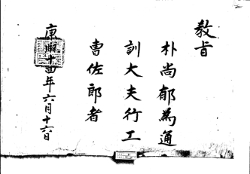 敎旨
朴尙郁爲通
訓大夫行工
曹佐郎者
康熙十四年六月十六日